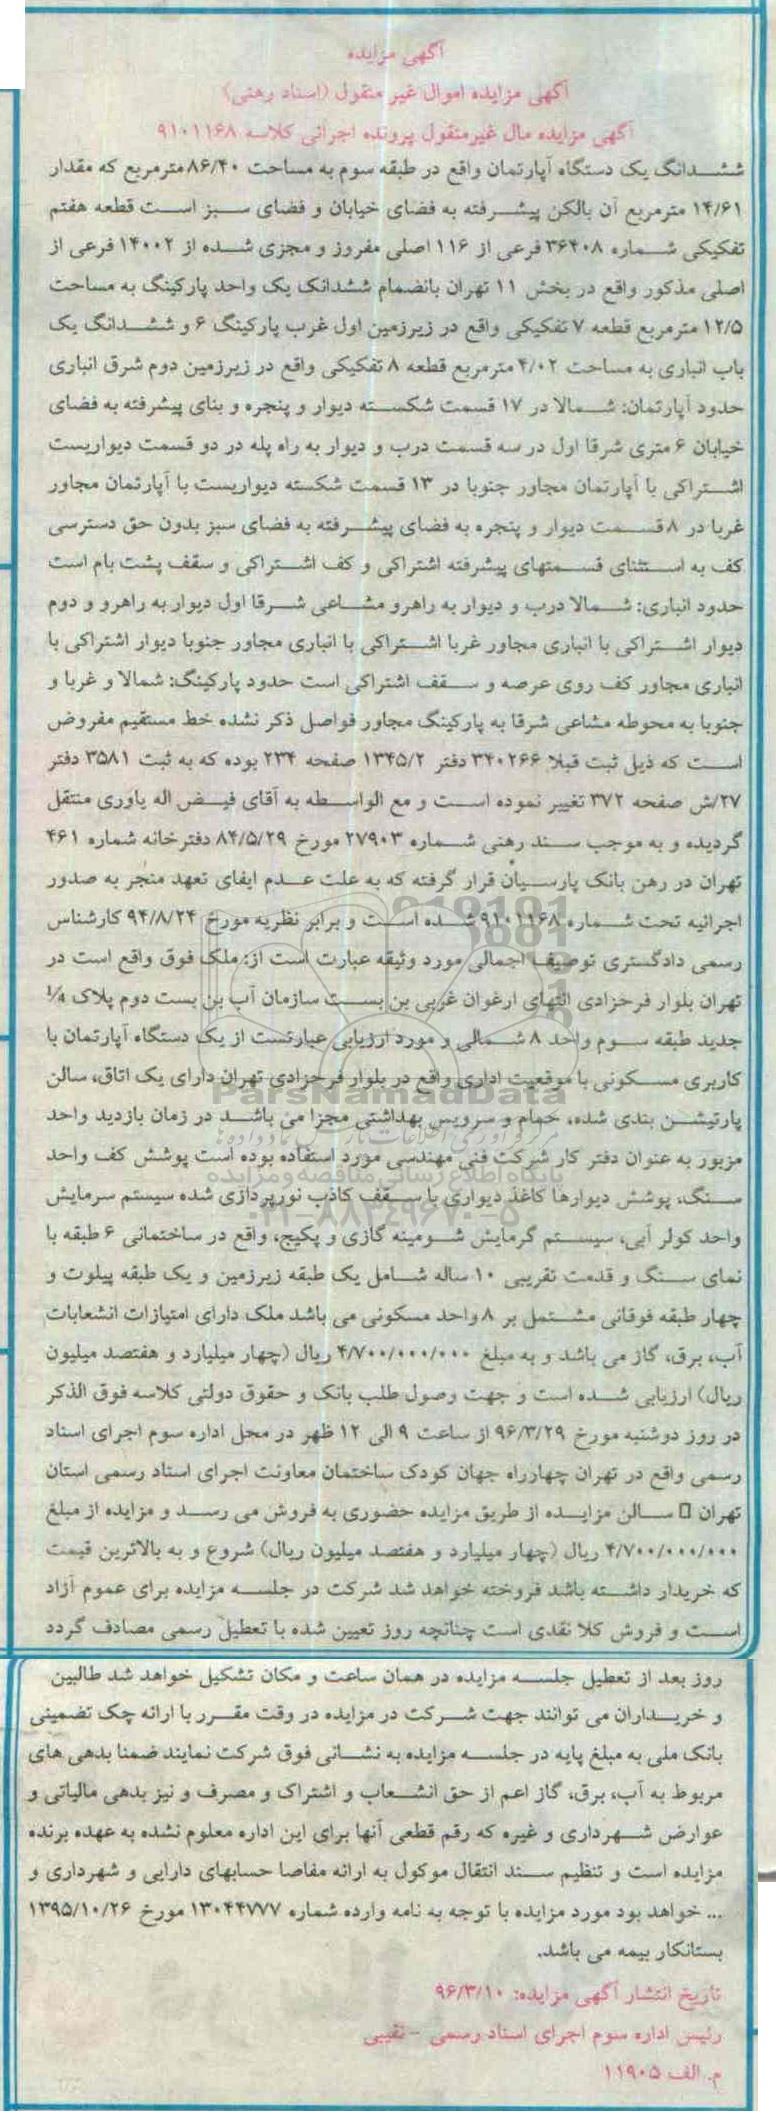 آگهی مزایده
آگهی مزایده اموال غیر منقول (اسناد رهنی)
آگهی مزایده مال غیرمنقول پرونده اجرائی کلاسه ۹۱۰۱۱۶۸
ششدانگ یک دستگاه آپارتمان واقع در طبقه سوم به مساحت ۸۶/۴۰ مترمربع که مقدار
۱۴/۶۱ مترمربع آن بالکن پیشرفته به فضای خیابان و فضای سبز است قطعه هفتم
تفکیکی شماره ۳۶۴۰۸ فرعی از ۱۱۶ اصلی مفروز و مجزی شده از ۱۴۰۰۲ فرعی از
اصلی مذکور واقع در بخش ۱۱ تهران بانضمام ششدانگ یک واحد پارکینگ به مساحت
۱۲/۵ مترمربع قطعه ۷ تفکیکی واقع در زیرزمین اول غرب پارکینگ ۶ و ششدانگ یک
باب انباری به مساحت ۴/۰۲ مترمربع قطعه ۸ تفکیکی واقع در زیرزمین دوم شرق انباری
حدود آپارتمان: شمالا در ۱۷ قسمت شکسته دیوار و پنجره و بنای پیشرفته به فضای
خیابان ۶ متری شرقا اول در سه قسمت درب و دیوار به راه پله در دو قسمت دیواریست
اشتراکی با آپارتمان مجاور جنوبا در ۱۳ قسمت شکسته دیواریست با آپارتمان مجاور
غربا در ۸ قسمت دیوار و پنجره به فضای پیشرفته به فضای سبز بدون حق دسترسی
کف به استثنای قسمتهای پیشرفته اشتراکی و کف اشتراکی و سقف پشت بام است
حدود انباری: شمالا درب و دیوار به راهرو مشاعی شرقا اول دیوار به راهرو و دوم
دیوار اشتراکی با انباری مجاور غربا اشتراکی با انباری مجاور جنوبا دیوار اشتراکی با
انباری مجاور کف روی عرصه و سقف اشتراکی است حدود پارکینگ: شمالا و غربا و
جنوبا به محوطه مشاعی شرقا به پارکینگ مجاور فواصل ذکر نشده خط مستقیم مفروض
است که ذیل ثبت قبلا ۳۴۰۲۶۶ دفتر ۱۳۴۵/۲ صفحه ۲۳۴ بوده که به ثبت ۳۵۸۱ دفتر
۲۷/ش صفحه ۳۷۲ تغییر نموده است و مع الواسطه به آقای فیض اله یاوری منتقل
گردیده و به موجب سند رهنی شماره ۲۷۹۰۳ مورخ ۸۴/۵/۲۹ دفترخانه شماره ۴۶۱
تهران در رهن بانک پارسیان قرار گرفته که به علت عدم ایفای تعهد منجر به صدور
اجرائیه تحت شماره ۹۱۰۱۱۶۸ شده است و برابر نظریه مورخ ۹۴/۸/۲۴ کارشناس
رسمی دادگستری توصیف اجمالی مورد وثیقه عبارت است از: ملک فوق واقع است در
تهران بلوار فرحزادی انتهای ارغوان غربی بن بست سازمان آب بن بست دوم پلاک ۴/۱
جدید طبقه سوم واحد ۸ شمالی و مورد ارزیابی عبارتست از یک دستگاه آپارتمان با
کاربری مسکونی با موقعیت اداری واقع در بلوار فرحزادی تهران دارای یک اتاق، سالن
پارتیشن بندی شده، حمام و سرویس بهداشتی مجزا می باشد در زمان بازدید واحد
مزبور به عنوان دفتر کار شرکت فنی مهندسی مورد استفاده بوده است پوشش کف واحد
سنگ، پوشش دیوارها کاغذ دیواری با سقف کاذب نورپردازی شده سیستم سرمایش
واحد کولر آبی، سیستم گرمایش شومینه گازی و پکیج، واقع در ساختمانی ۶ طبقه با
نمای سنگ و قدمت تقریبی ۱۰ ساله شامل یک طبقه زیرزمین و یک طبقه پیلوت و
چهار طبقه فوقانی مشتمل بر ۸ واحد مسکونی می باشد ملک دارای امتیازات انشعابات
آب، برق، گاز می باشد و به مبلغ ۴/۷۰۰/۰۰۰/۰۰۰ ریال (چهار میلیارد و هفتصد میلیون
ریال) ارزیابی شده است و جهت وصول طلب بانک و حقوق دولتی کلاسه فوق الذکر
در روز دوشنبه مورخ ۹۶/۳/۲۹ از ساعت ۹ الی ۱۲ ظهر در محل اداره سوم اجرای اسناد
رسمی واقع در تهران چهارراه جهان کودک ساختمان معاونت اجرای اسناد رسمی استان
تهران سالن مزایده از طریق مزایده حضوری به فروش می رسد و مزایده از مبلغ
۴/۷۰۰/۰۰۰/۰۰۰ ریال (چهار میلیارد و هفتصد میلیون ریال) شروع و به بالاترین قیمت
که خریدار داشته باشد فروخته خواهد شد شرکت در جلسه مزایده برای عموم آزاد
است و فروش کلا نقدی است چنانچه روز تعیین شده با تعطیل رسمی مصادف گردد
روز بعد از تعطیل جلسه مزایده در همان ساعت و مکان تشکیل خواهد شد طالبین
و خریداران می توانند جهت شرکت در مزایده در وقت مقرر با ارائه چک تضمینی
بانک ملی به مبلغ پایه در جلسه مزایده به نشانی فوق شرکت نمایند ضمنا بدهی های
مربوط به آب، برق، گاز اعم از حق انشعاب و اشتراک و مصرف و نیز بدهی مالیاتی و
عوارض شهرداری و غیره که رقم قطعی آنها برای این اداره معلوم نشده به عهده برنده
مزایده است و تنظیم سند انتقال موکول به ارائه مفاصا حسابهای دارایی و شهرداری و
... خواهد بود مورد مزایده با توجه به نامه وارده شماره ۱۳۰۴۴۷۷۷ مورخ ۱۳۹۵/۱۰/۲۶
بستانکار بیمه می باشد.
تاریخ انتشار آگهی مزایده: ۹۶/۳/۱۰
رئیس اداره سوم اجرای اسناد رسمی - نقیبی
م. الف ۱۱۹۰۵
ParsNamadData
پایگاه اطلاع رسانی مناقصه و مزایده
۰۲۱-۸۸۳۴۹۶۷۰-۵